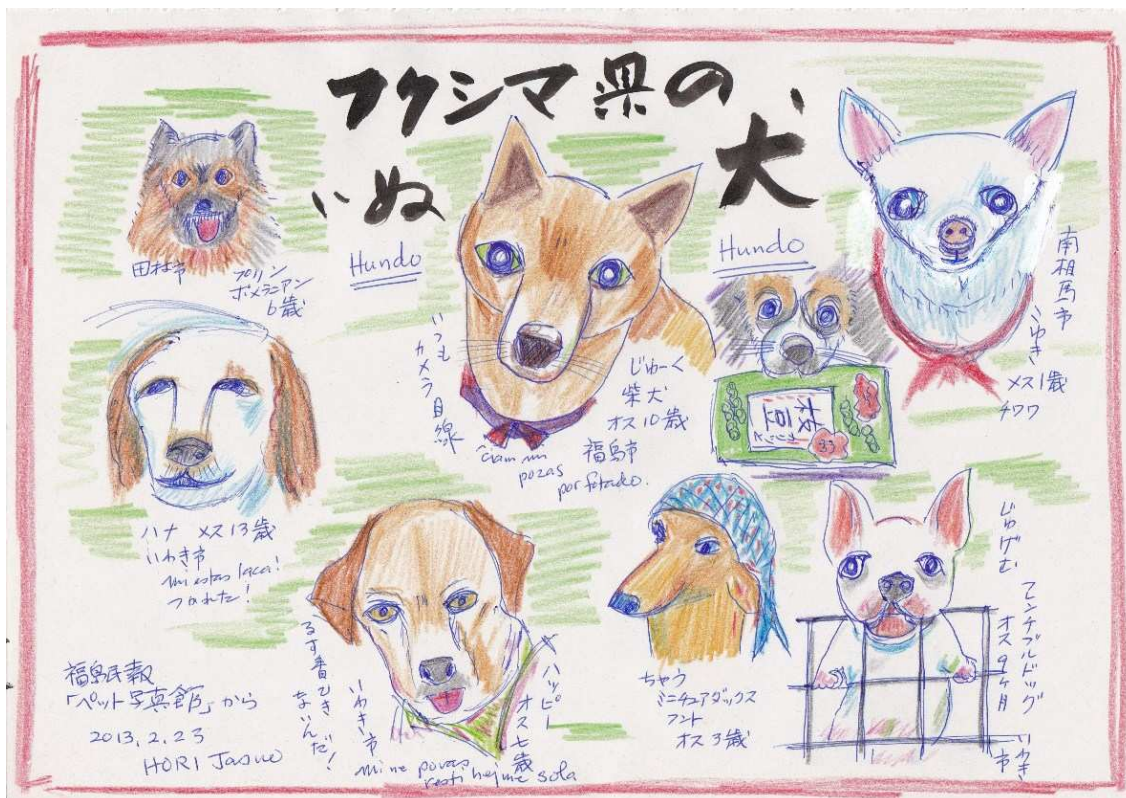 フクシマ県の
いぬ
犬
Hundo
Hundo
田村市
プリン
ポメラニアン
6歳
いつも
カメラ目線
じゅーく
柴犬
オス10歳
福島市
ĉiam mi
pozas
por fotado.
枝豆
南相馬市
こゆき
メス1歳
チワワ
ハナ メス13歳
いわき市
mi estas laca!
つかれた!
ハッピー
オス七歳
いわき市
るす番でき
ないんだ!
mi ne povas
resti hejme sola
ちゃう
ミニチュアダックス
フント
オス3歳
じゅげむ
フレンチブルドッグ
オス9ヶ月
いわき市
福島民報
「ペット写真館」から
2013.2.23
HORI Jasuo